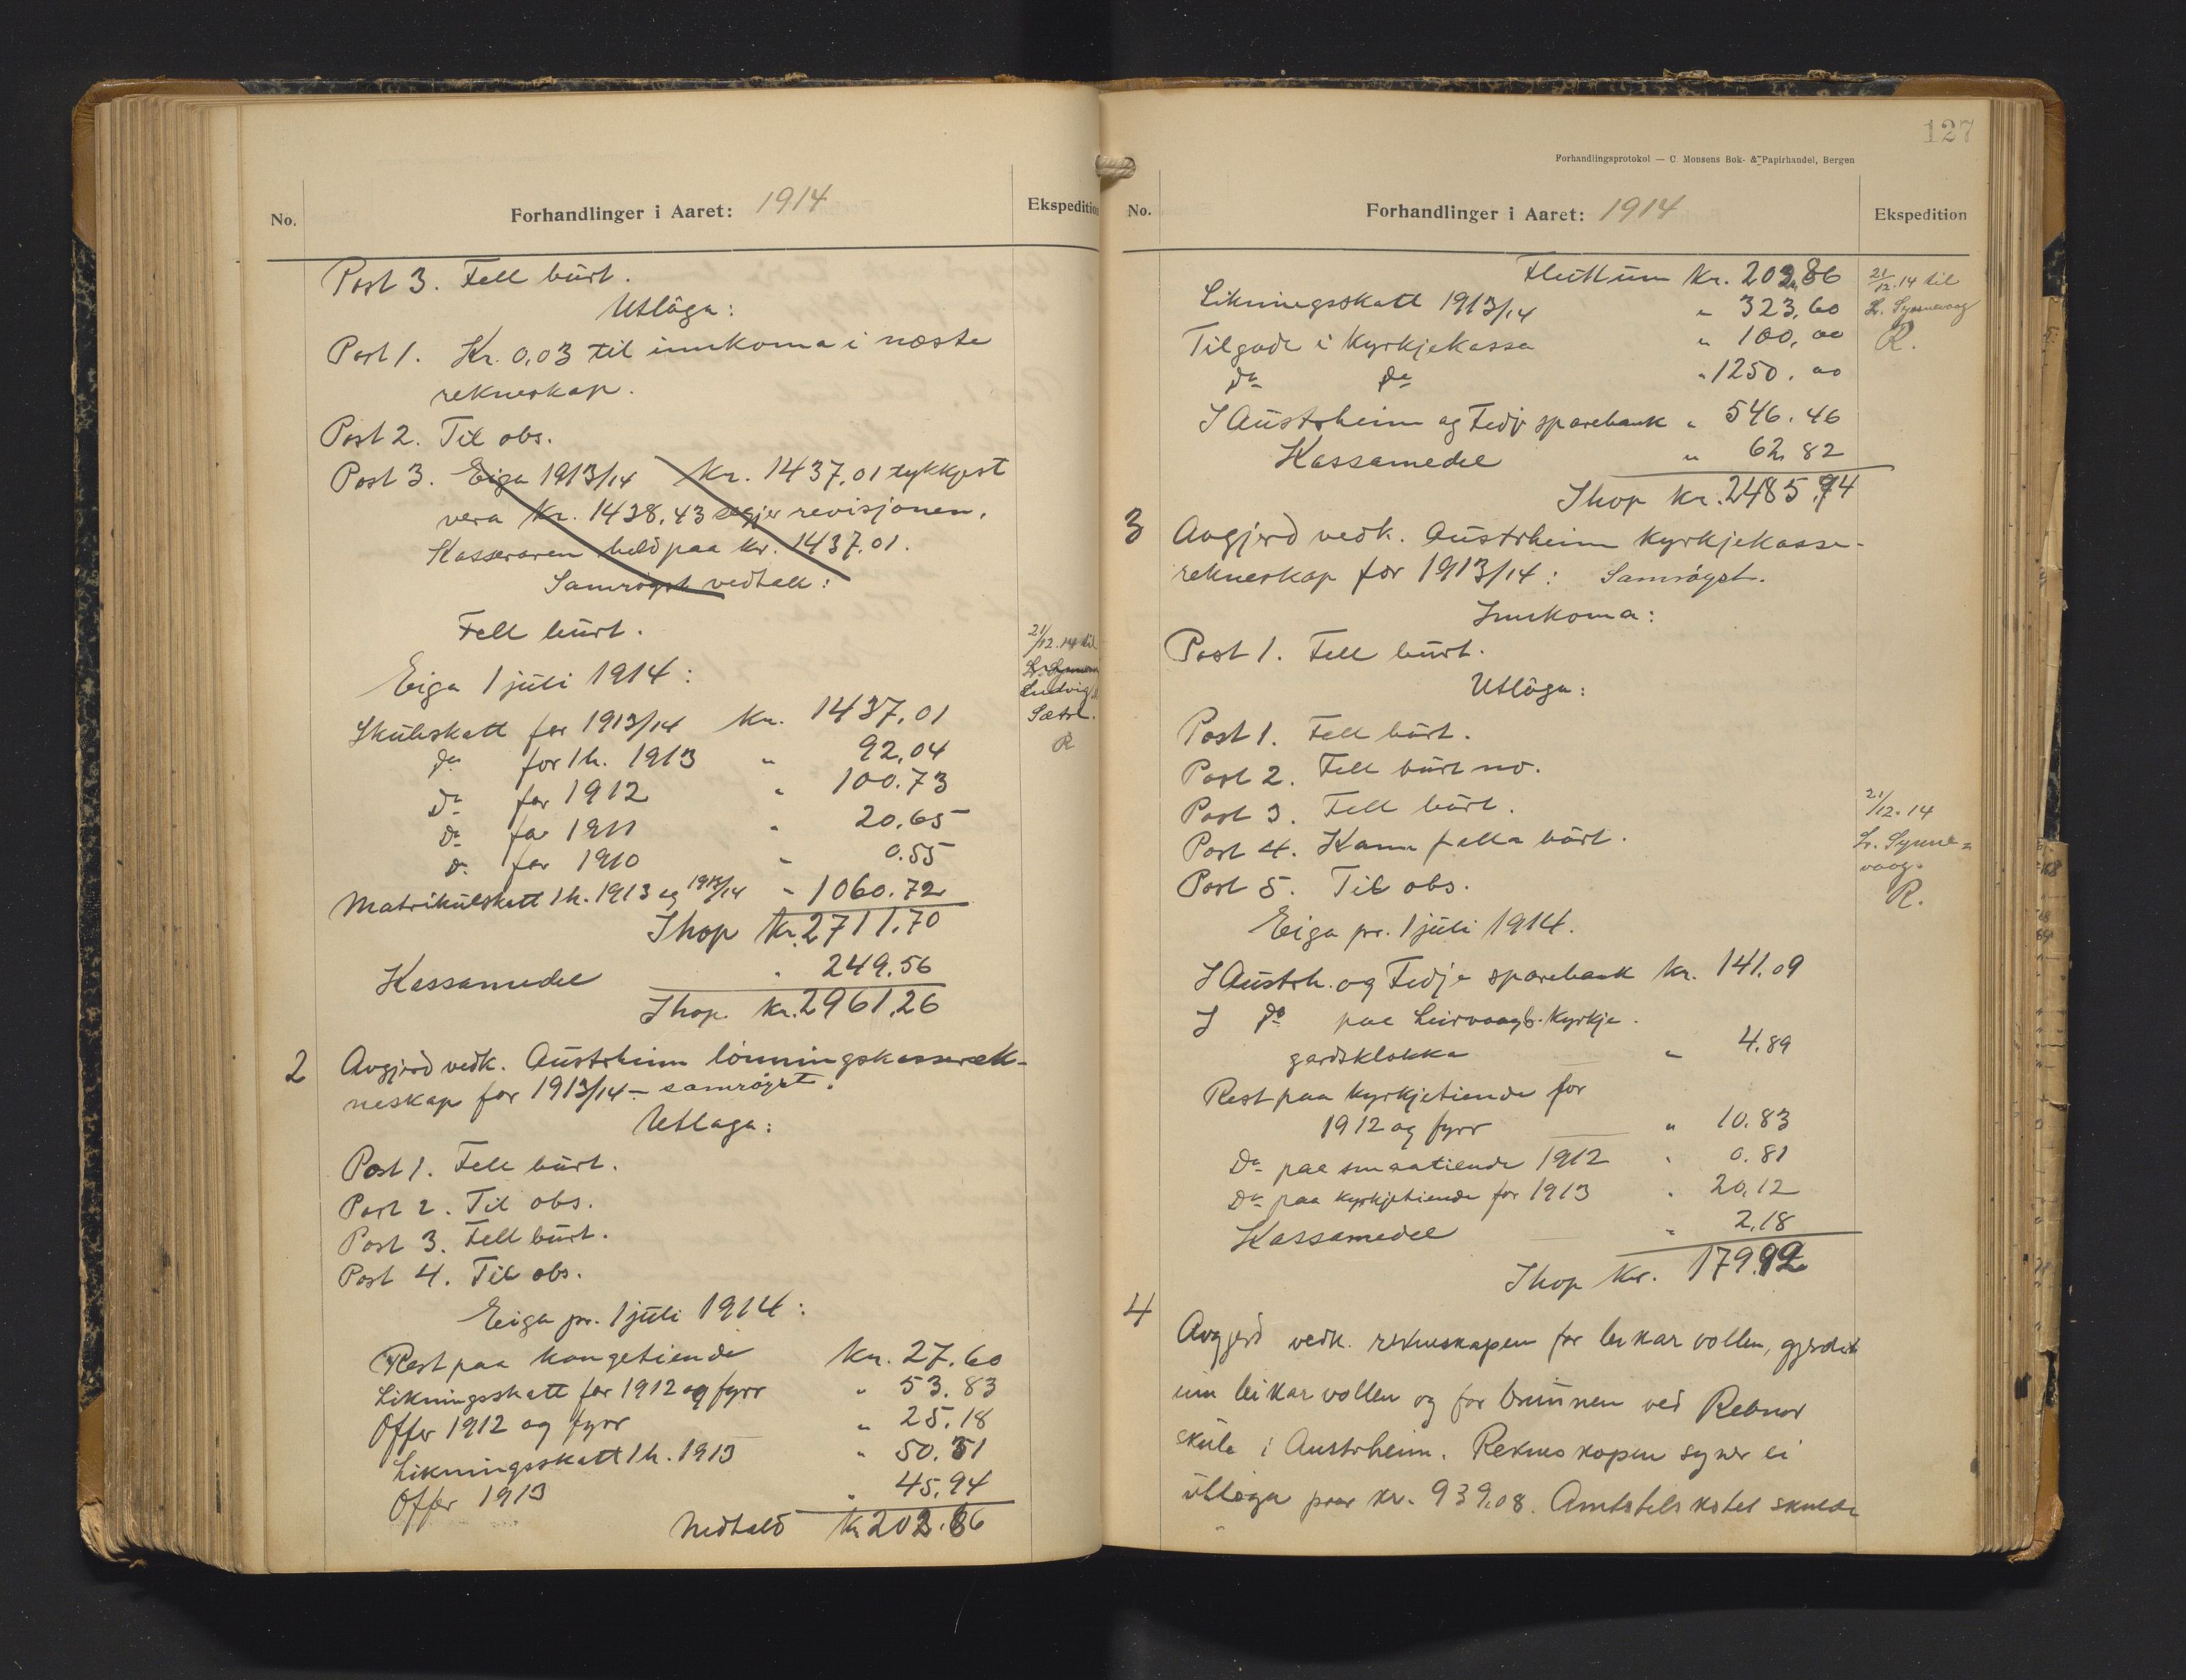 No.
Forhandlinger i Aaret: 1914
Ekspedition
Post 3. Fell burt.
Utlöga:
Post 1. Kr. 0,03 til innkoma i næste
rekneskap.
Post 2. Til obs.
Post 3. Eiga 1913/14 kr. 1437,01 tykkjest
vera kr. 1438,43 segjer revisjonen.
Kasseraren held paa kr. 1437,01.
Samrøyst vedtak:
Fell burt.
Eiga 1 juli 1914:
Skuleskatt for 1913/14 kr. 1437,01
Do for 1h. 1913 " 92,04
Do for 1912 " 100.73
Do for 1911 " 20.65
Do for 1910 " 0.55
Matrikulskatt 1h. 1913 og 1913/14 " 1060.72
Ihop kr. 2711.70
Kassamedel " 249.56
Ihop kr. 2961,26
21/12.14 til
Ludvig
Sætre.
R
2 Avgjerd vedk. Austrheim lönningskasserek-
neskap for 1913/14 – samrøyst.
Utlaga:
Post 1. Fell burt.
Post 2. Til obs.
Post 3. Fell burt.
Post 4. Til obs.
Eiga pr. 1 juli 1914:
Rest paa kongetiende kr. 27.60
Likningsskatt for 1912 og fyrr " 53.83
Offer 1912 og fyrr " 25.18
Likningsskatt 1h. 1913 " 50.31
Offer 1913 " 45.94
Nedtald kr 202.86
127
Forhandlingsprotokol — C. Monsens Bok- & Papirhandel, Bergen
No.
Forhandlinger i Aaret: 1914
Ekspedition
Fluttum kr. 202,86
Likningsskatt 1913/14 " 323,60
Tilgode i kyrkjekassa " 100,00
Do Do " 1250.00
I Austrheim og Fedje sparebank " 546.46
Kassamedel " 62,82
Ihop kr. 2485,74
21/12.14 til
L. Synnevaag
R.
3 Avgjerd vedk. Austrheim kyrkjekasse-
rekneskap for 1913/14: Samrøyst.
Innkoma:
Post 1. Fell burt.
Utlöga:
Post 1. Fell burt.
Post 2. Fell burt no.
Post 3. Fell burt.
Post 4. Kann falla burt.
Post 5. Til obs.
21/12.14
L. Synne=
vaag.
R.
Eiga pr. 1 juli 1914.
I Austrh. og Fedje sparebank kr. 141.09
I Do paa Leirvaag kyrkje-
gardsklokka " 4.89
Rest paa kyrkjetiende for
1912 og fyrr " 10.83
Do paa smaatiende 1912 " 0.81
Do paa kyrkjetiende for 1913 " 20,12
Kassamedel " 2,18
Ihop kr. 179.92
4 Avgjerd vedk. rekneskapen for leikarvollen, gjerdet
um leikarvollen og for brunnen ved Rebnor
skule i Austrheim. Rekneskapen syner ei
utløga paa kr. 939.08. Amtstilskotet skulde